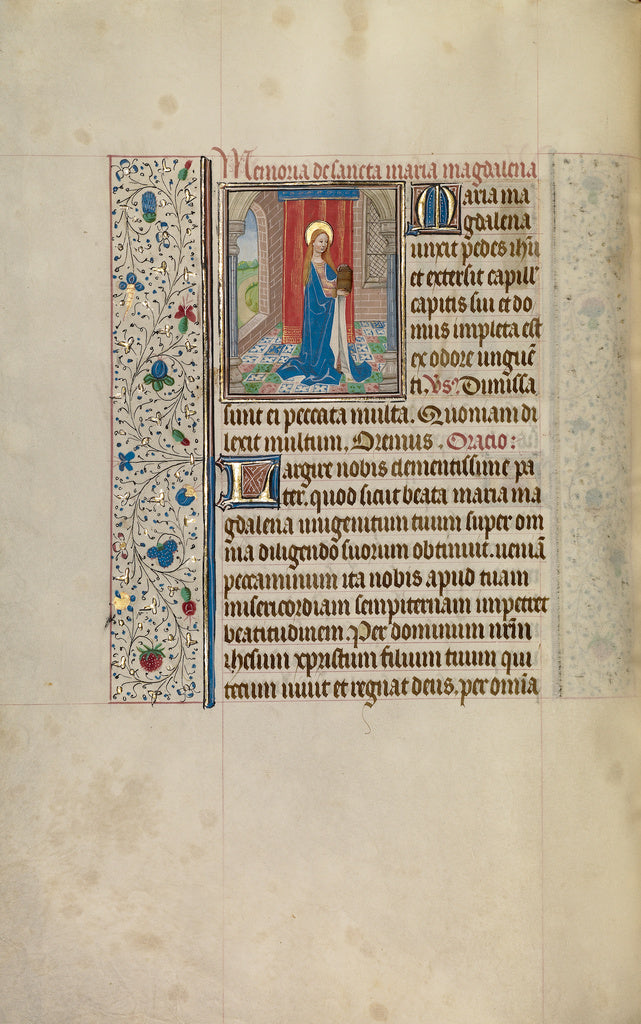 Memoria de sancta maria magdalena
Maria ma
gdalena
unxit pedes ihū
et extersit capill
capitis sui et do
mus impleta est
ex odore unguē
ti. Vs. Dimissa
sunt ei peccata multa. Quoniam di
lexit multum. Oremus. Oracio:
Largire nobis clementissime pa
ter. quod sicut beata maria ma
gdalena unigenitum tuum super om
nia diligendo suorum obtinuit. ueniā
peccaminum ita nobis apud tuam
misericordiam sempiternam impetret
beatitudinem. Per dominum nr̄m
ihesum xpristum filium tuum qui
tecum uiuit et regnat deus. per omīa